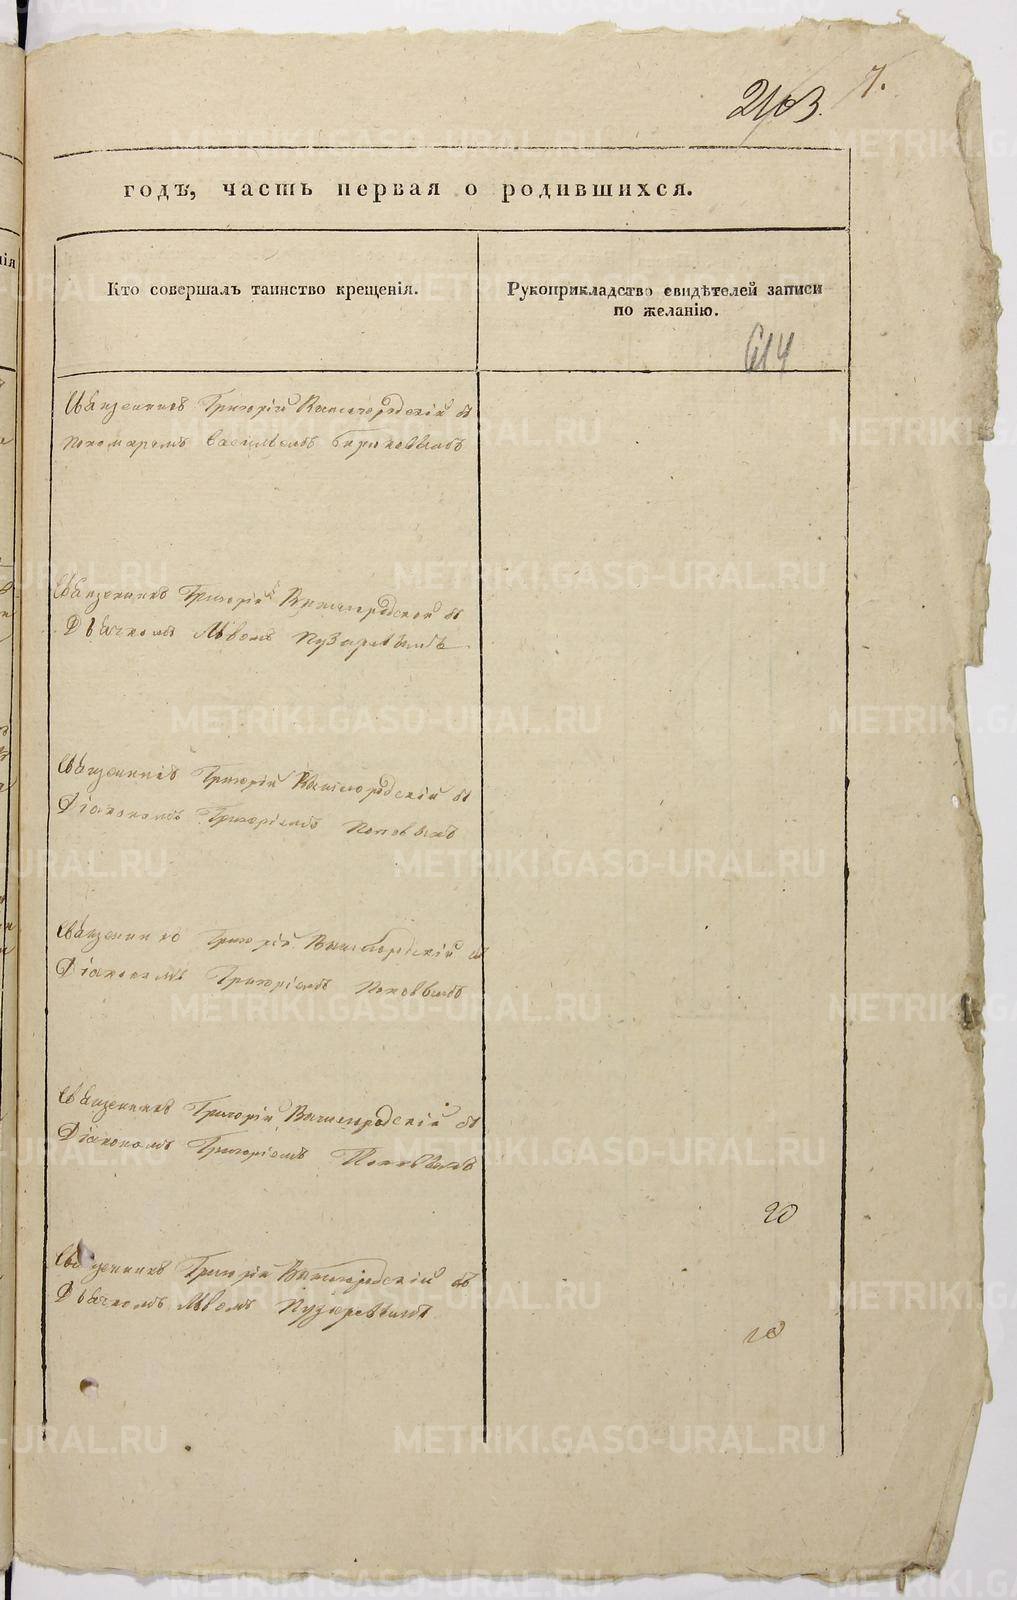 7.
годъ, часть первая о родившихся.
Кто совершалъ таинство крещенія.
Рукоприкладство свидѣтелей записи
по желанію.
614
Священникъ Григорій Вышегородскій съ
пономаремъ Василіемъ
Священникъ Григорій Вышегородской съ
Дьячкомъ Львомъ Пузыревымъ
Священникъ Григорій Вышегородскій съ
Діакономъ Григоріемъ Поповымъ
Священникъ Григорій Вышегородскій съ
Діакономъ Григоріемъ Поповымъ
Священникъ Григорій Вышегородскій съ
Діакономъ Григоріемъ Поповымъ
20
Священникъ Григорій Вышегородскій съ
Дьячкомъ Львомъ Пузыревымъ
METRIKI.GASO-URAL.RU